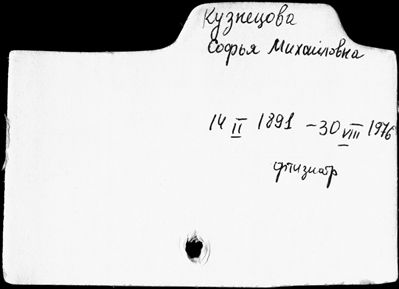 Кузнецова
Софья Михайловна
14 II 1891 – 30 VIII 1976
фтизиатр